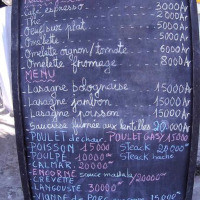 Café espresso 3000 Ar
Thé
Oeuf sur plat 5000 Ar
Omelette 5000
Omelette oignon/tomate 6000 Ar
Omelette fromage 8000 Ar
MENU
Lasagne bolognaise 15000 Ar
Lasagne jambon 15000 Ar
Lasagne poisson 15000 Ar
Saucisse fumée aux lentilles 20.000 Ar
POULET de chair POULET GASY 15000
POISSON 15000 Steack 20000
POULPE 10000 Steack haché
CALMAR 20000
ENCORNE sauce
CREVETTE 20000 Ar
LANGOUSTE 30000
VIANDE de PORC 15000